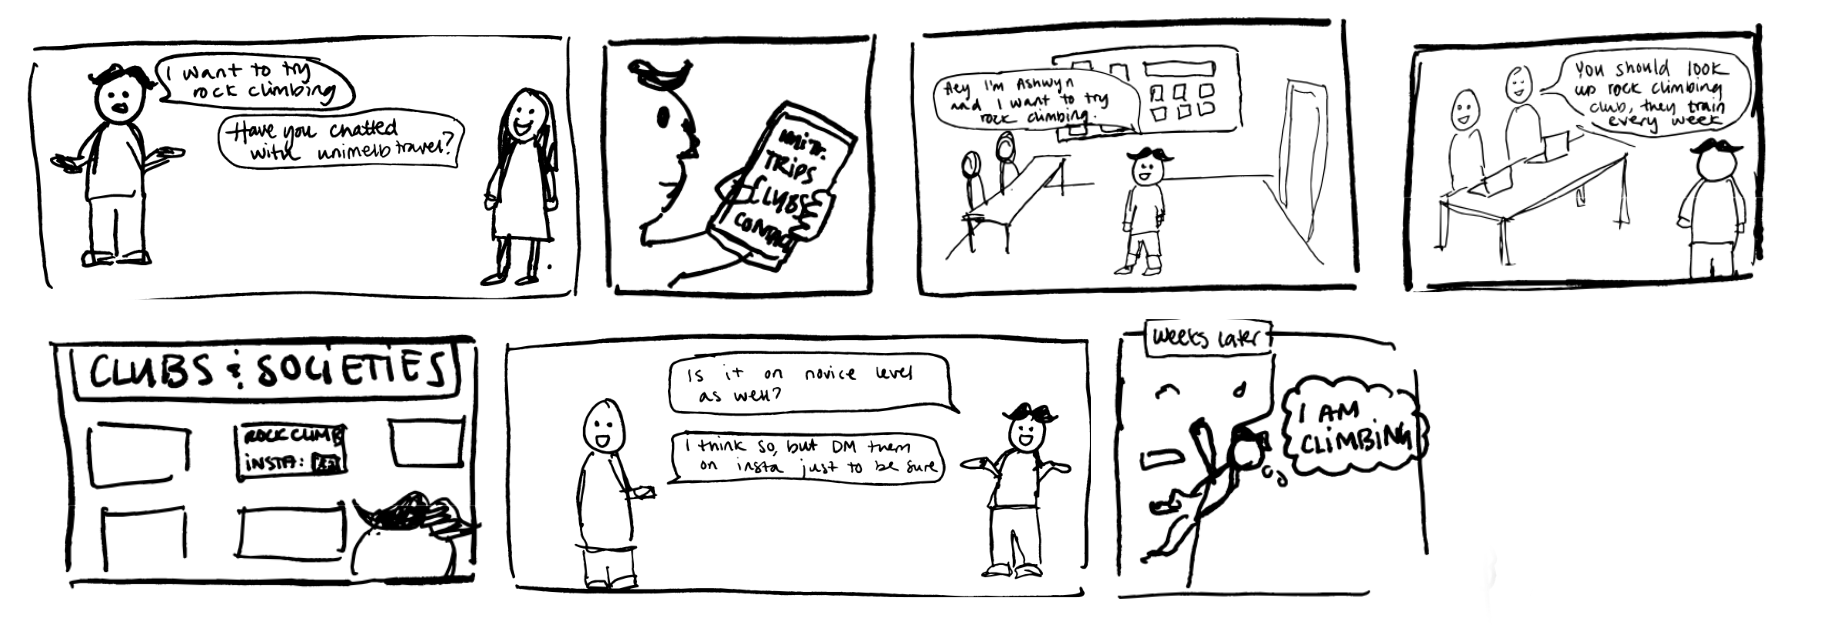 I want to try
rock climbing
Have you chatted
with unimelb travel?
TRIPS
CLUBS
CONTACT
Hey I'm Ashwyn
and I want to try
rock climbing.
You should look
up rock climbing
club, they train
every week
CLUBS & SOCIETIES
ROCK CLIMB
INSTA:
Is it on novice level
as well?
I think so, but DM them
on insta just to be sure
Weeks Later
I AM
CLIMBING